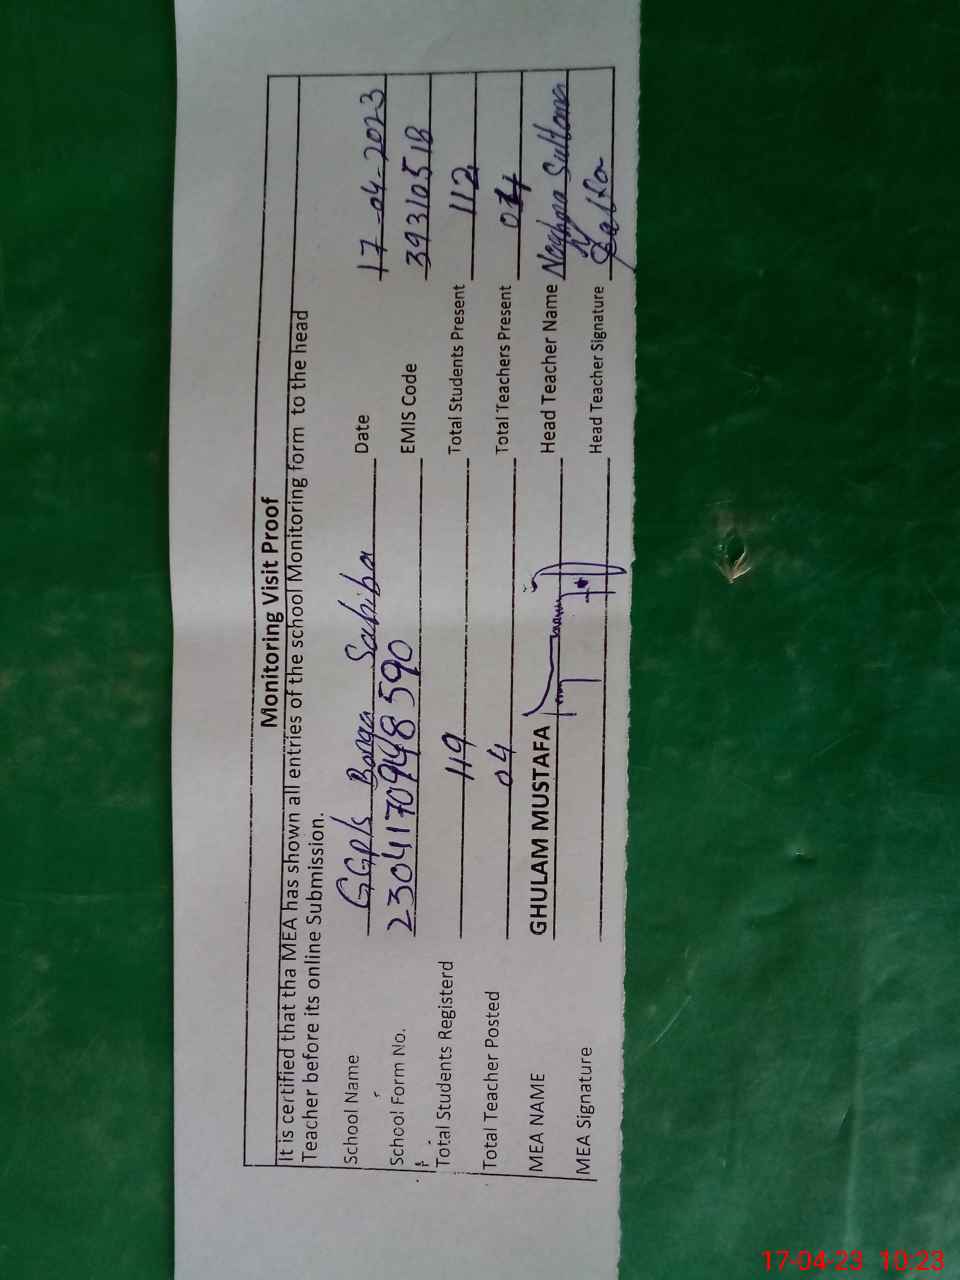 Monitoring Visit Proof
It is certified that tha MEA has shown all entries of the school Monitoring form to the head
Teacher before its online Submission.
School Name GGp/s Banga Sahiba Date 17-04-2023
School Form No. 230417094 8590 EMIS Code 39310518
Total Students Registerd 119 Total Students Present 112
Total Teacher Posted 04 Total Teachers Present 04
MEA NAME GHULAM MUSTAFA Head Teacher Name Sultana
MEA Signature Head Teacher Signature
17-04-23 10:23